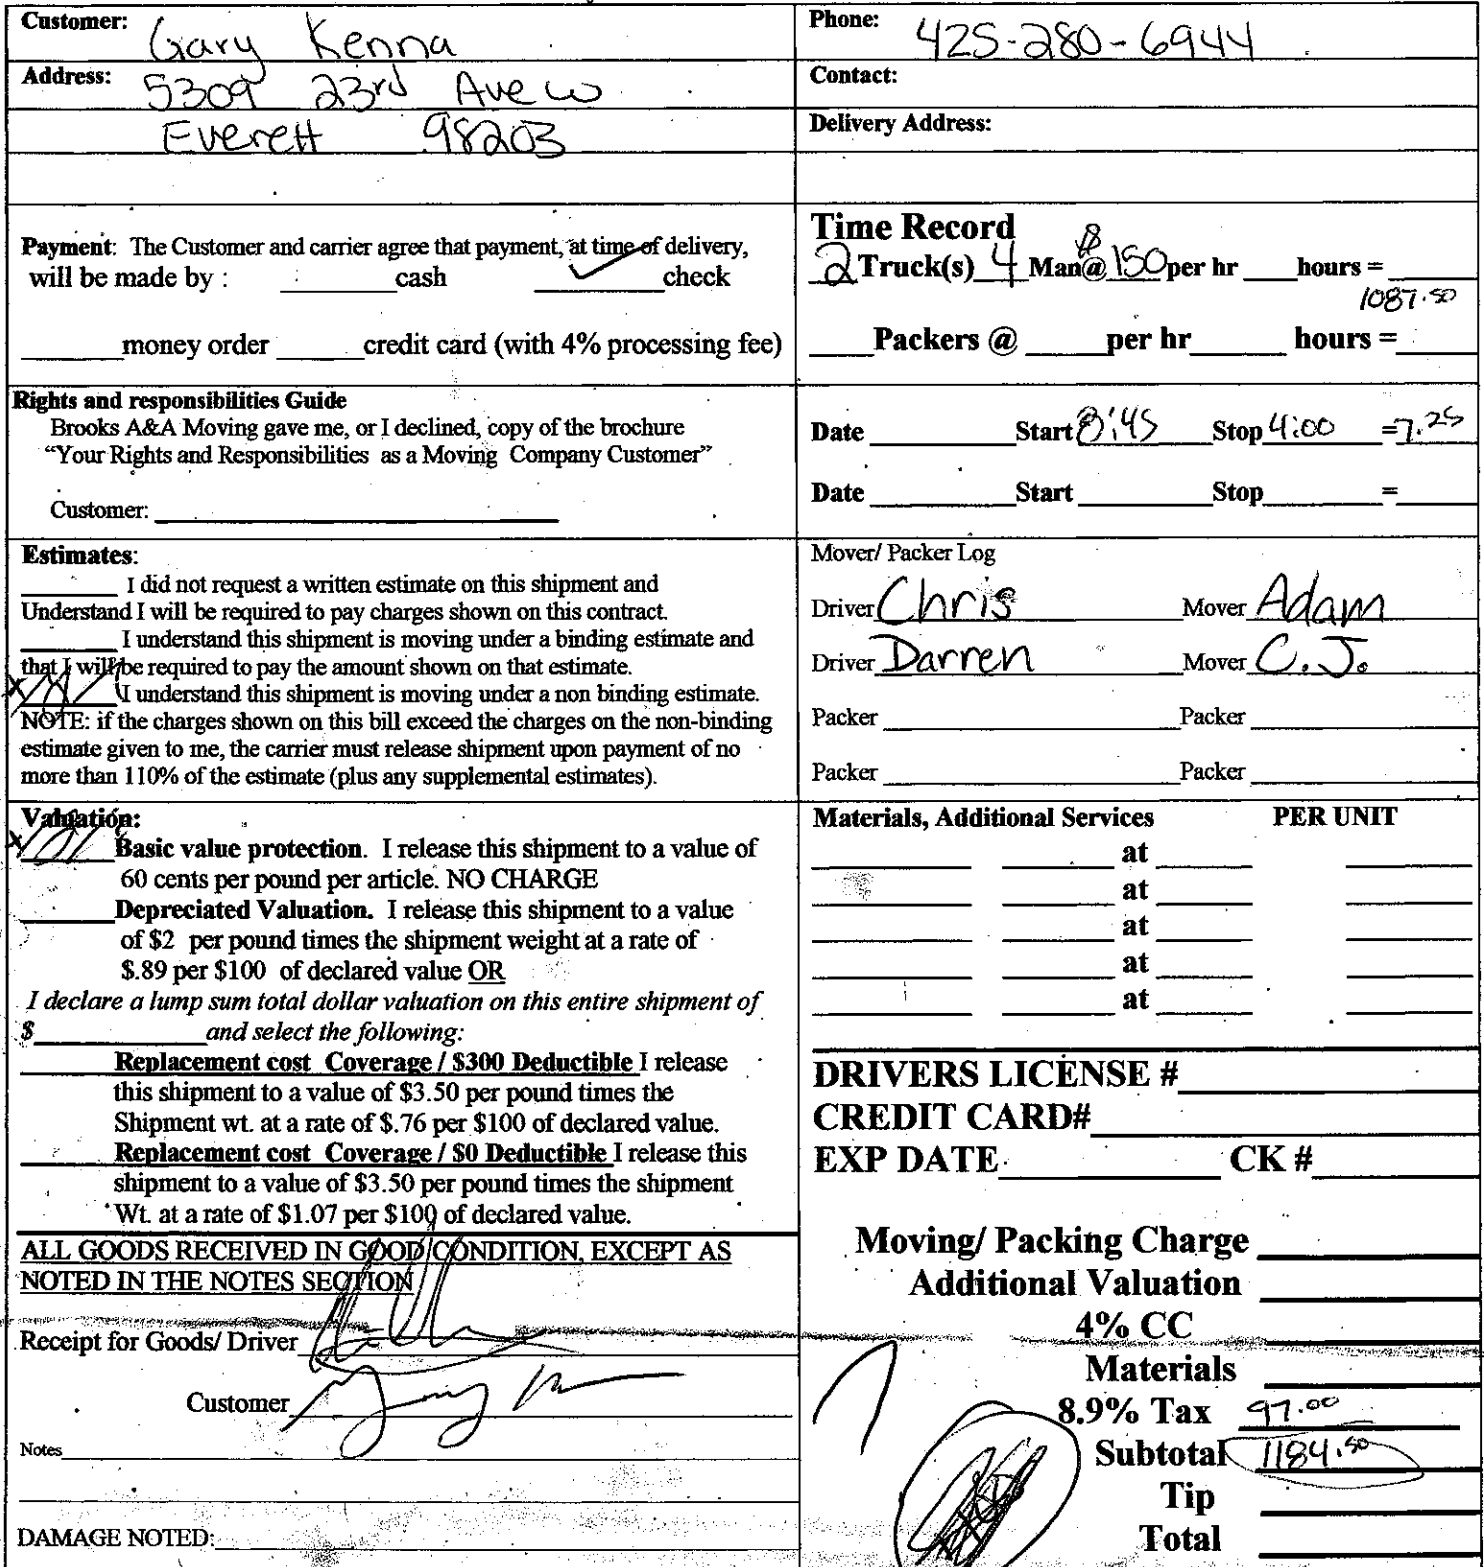 Customer: Gary Kenna
Address: 5309 23rd Ave W
Everett 98203
Phone: 425-280-6944
Contact:
Delivery Address:
Payment: The Customer and carrier agree that payment, at time of delivery,
will be made by : ______cash ✓ check
______money order ______credit card (with 4% processing fee)
Time Record
2 Truck(s) 4 Man@ $150 per hr ____hours =
1087.50
____Packers @ _____per hr______ hours =____
Rights and responsibilities Guide
Brooks A&A Moving gave me, or I declined, copy of the brochure
"Your Rights and Responsibilities as a Moving Company Customer"
Customer:
Date ________Start 8:45 Stop 4:00 =7.25
Date ________Start ________Stop______=
Estimates:
______ I did not request a written estimate on this shipment and
Understand I will be required to pay charges shown on this contract.
______ I understand this shipment is moving under a binding estimate and
that I will be required to pay the amount shown on that estimate.
I understand this shipment is moving under a non binding estimate.
NOTE: if the charges shown on this bill exceed the charges on the non-binding
estimate given to me, the carrier must release shipment upon payment of no
more than 110% of the estimate (plus any supplemental estimates).
Mover/ Packer Log
Driver Chris Mover Adam
Driver Darren Mover C.J.
Packer Packer
Packer Packer
Valuation:
Basic value protection. I release this shipment to a value of
60 cents per pound per article. NO CHARGE
______Depreciated Valuation. I release this shipment to a value
of $2 per pound times the shipment weight at a rate of
$.89 per $100 of declared value OR
I declare a lump sum total dollar valuation on this entire shipment of
$____________and select the following:
Replacement cost Coverage / $300 Deductible I release
this shipment to a value of $3.50 per pound times the
Shipment wt. at a rate of $.76 per $100 of declared value.
Replacement cost Coverage / $0 Deductible I release this
shipment to a value of $3.50 per pound times the shipment
Wt. at a rate of $1.07 per $100 of declared value.
Materials, Additional Services PER UNIT
at
at
at
at
at
DRIVERS LICENSE #
CREDIT CARD#
EXP DATE CK #
ALL GOODS RECEIVED IN GOOD CONDITION, EXCEPT AS
NOTED IN THE NOTES SECTION
Receipt for Goods/ Driver
Customer
Notes
DAMAGE NOTED:
Moving/ Packing Charge
Additional Valuation
4% CC
Materials
8.9% Tax 97.00
Subtotal 1184.50
Tip
Total